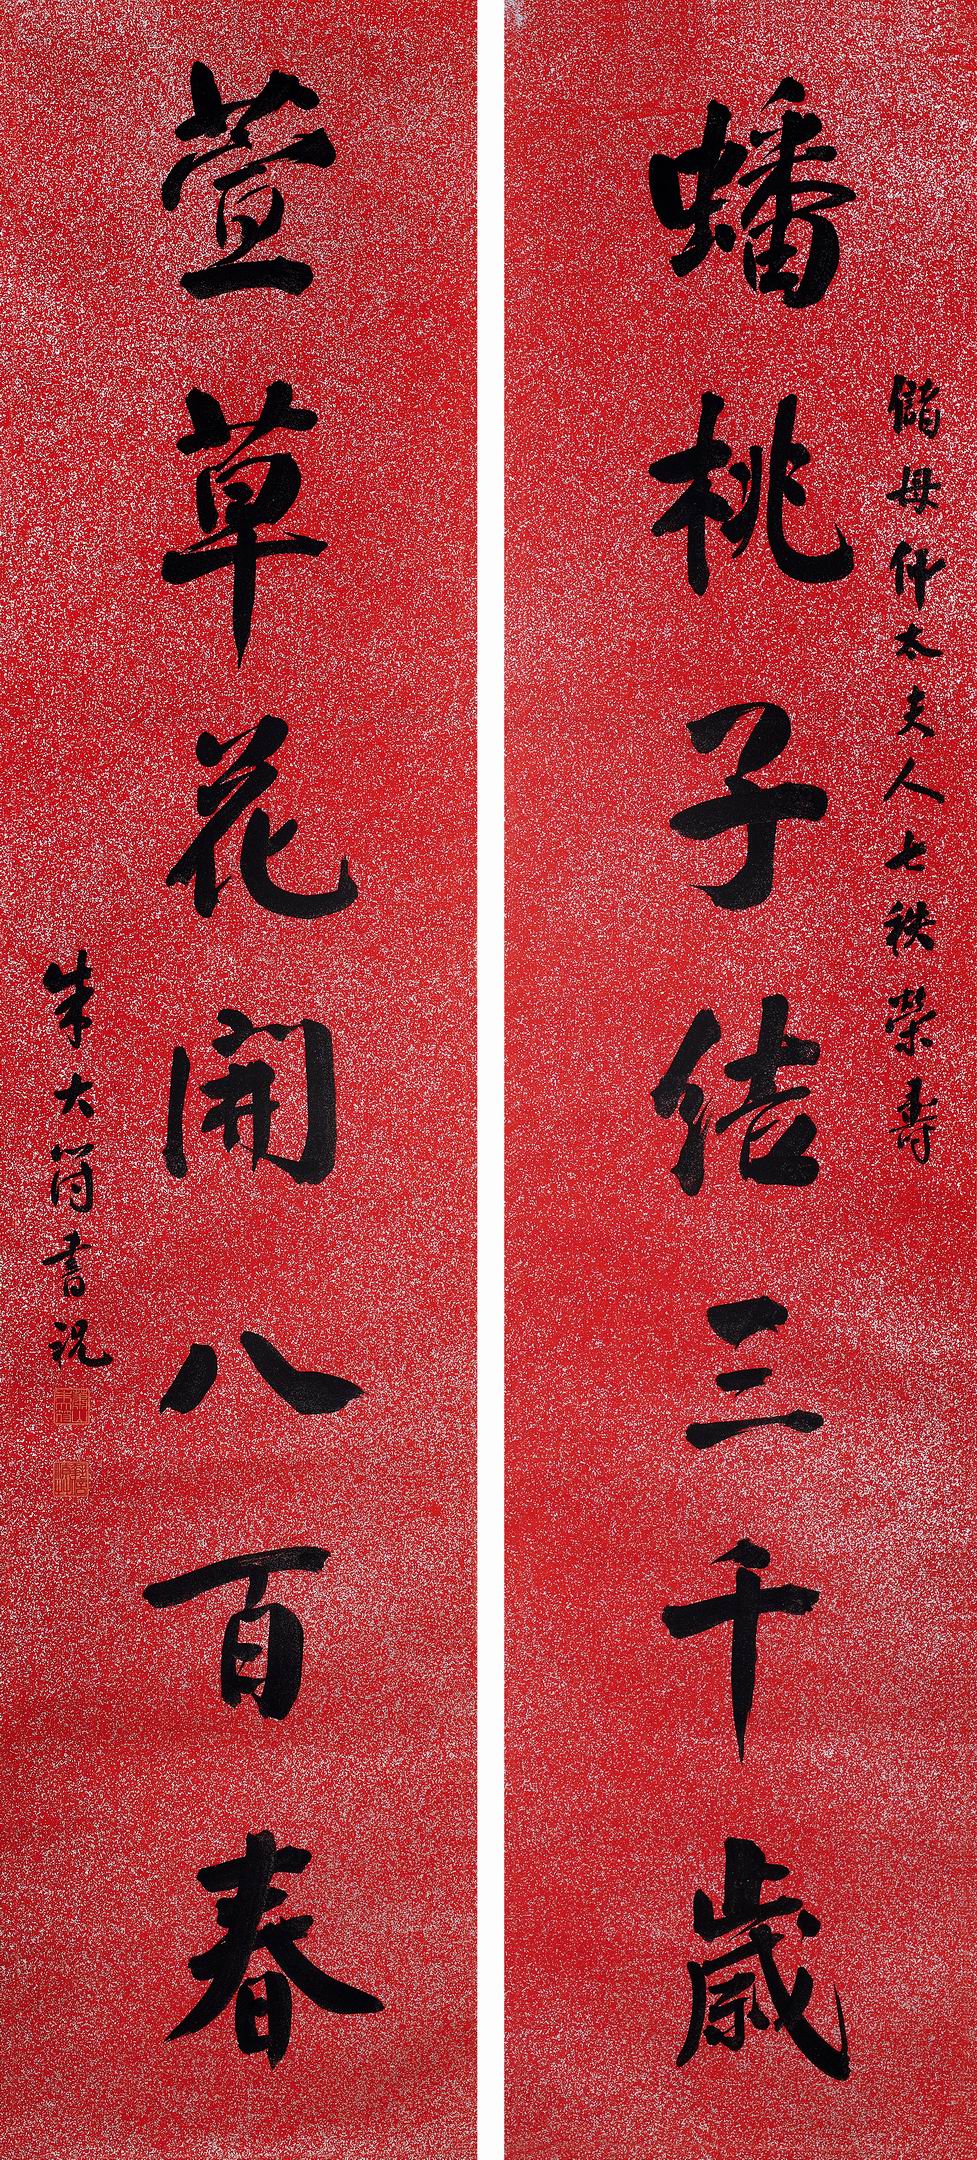 儲母仲太夫人七秩榮壽
蟠桃子結三千歲
萱草花開八百春
朱大符書祝